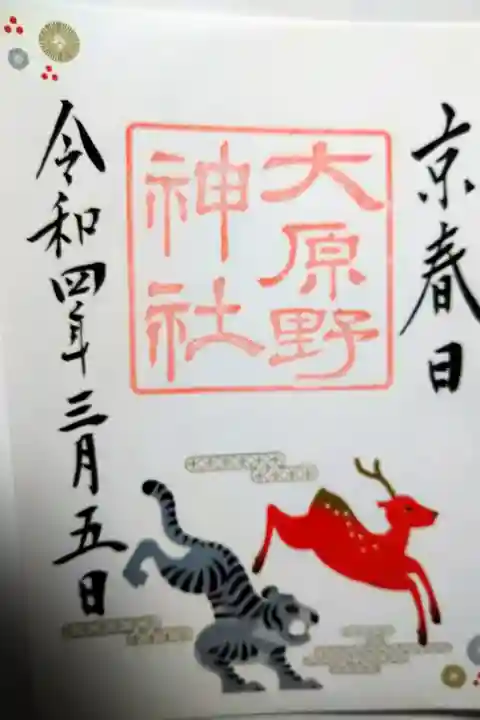 京春日
大原野
神社
令和四年三月五日